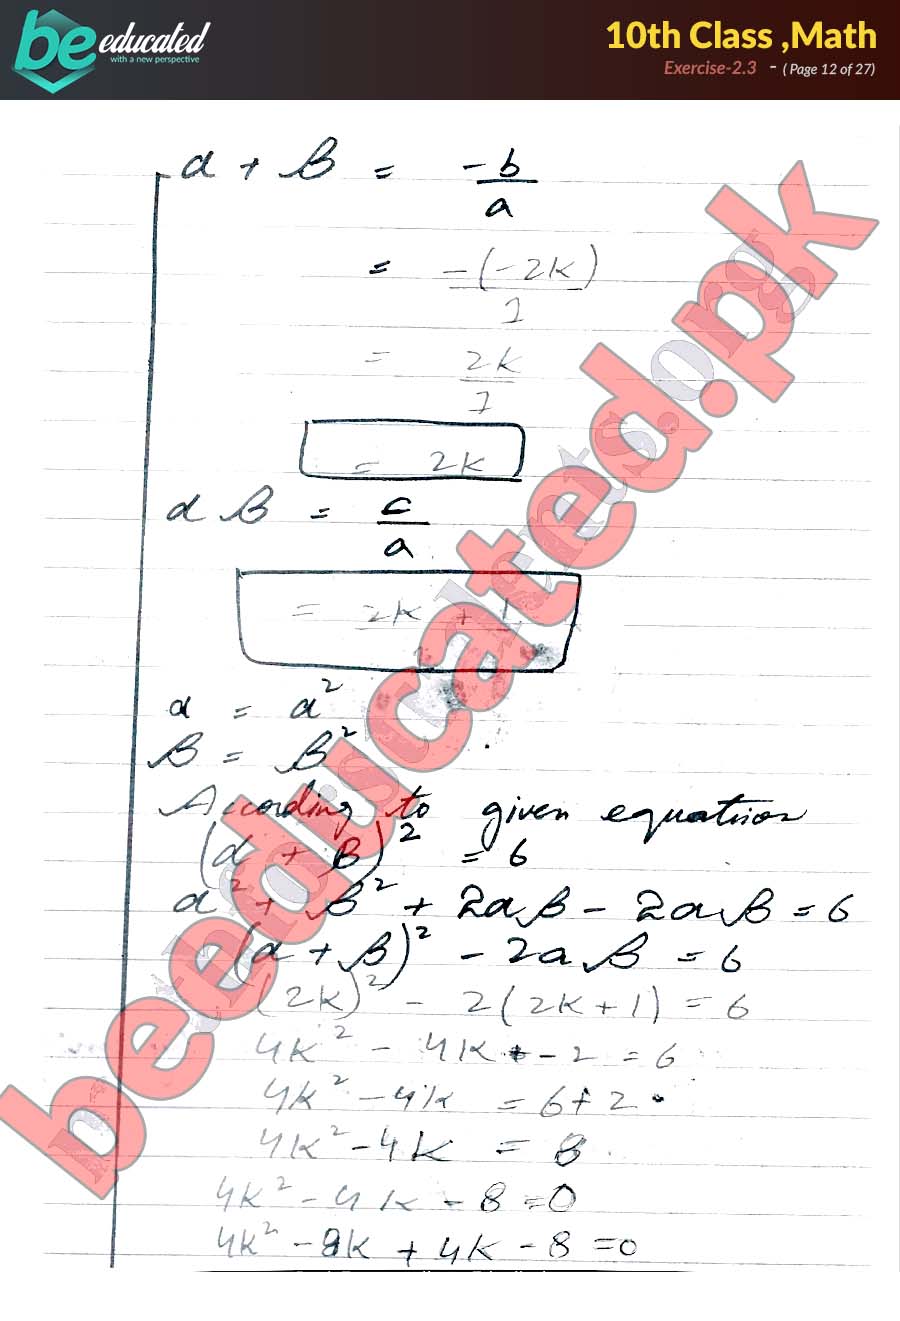 be educated
with a new perspective
10th Class ,Math
Exercise-2.3 - ( Page 12 of 27)
α + β = -b/a
= -(-2k)/1
= 2k/1
= 2k
α β = c/a
= 2k + 1
α = α²
β = β²
According to given equation
(α + β)² = 6
α² + β² + 2αβ - 2αβ = 6
(α + β)² - 2αβ = 6
(2k)² - 2(2k+1) = 6
4k² - 4k - 2 = 6
4k² - 4k = 6+2
4k² - 4k = 8
4k² - 4k - 8 = 0
4k² - 8k + 4k - 8 = 0
beeducated.pk